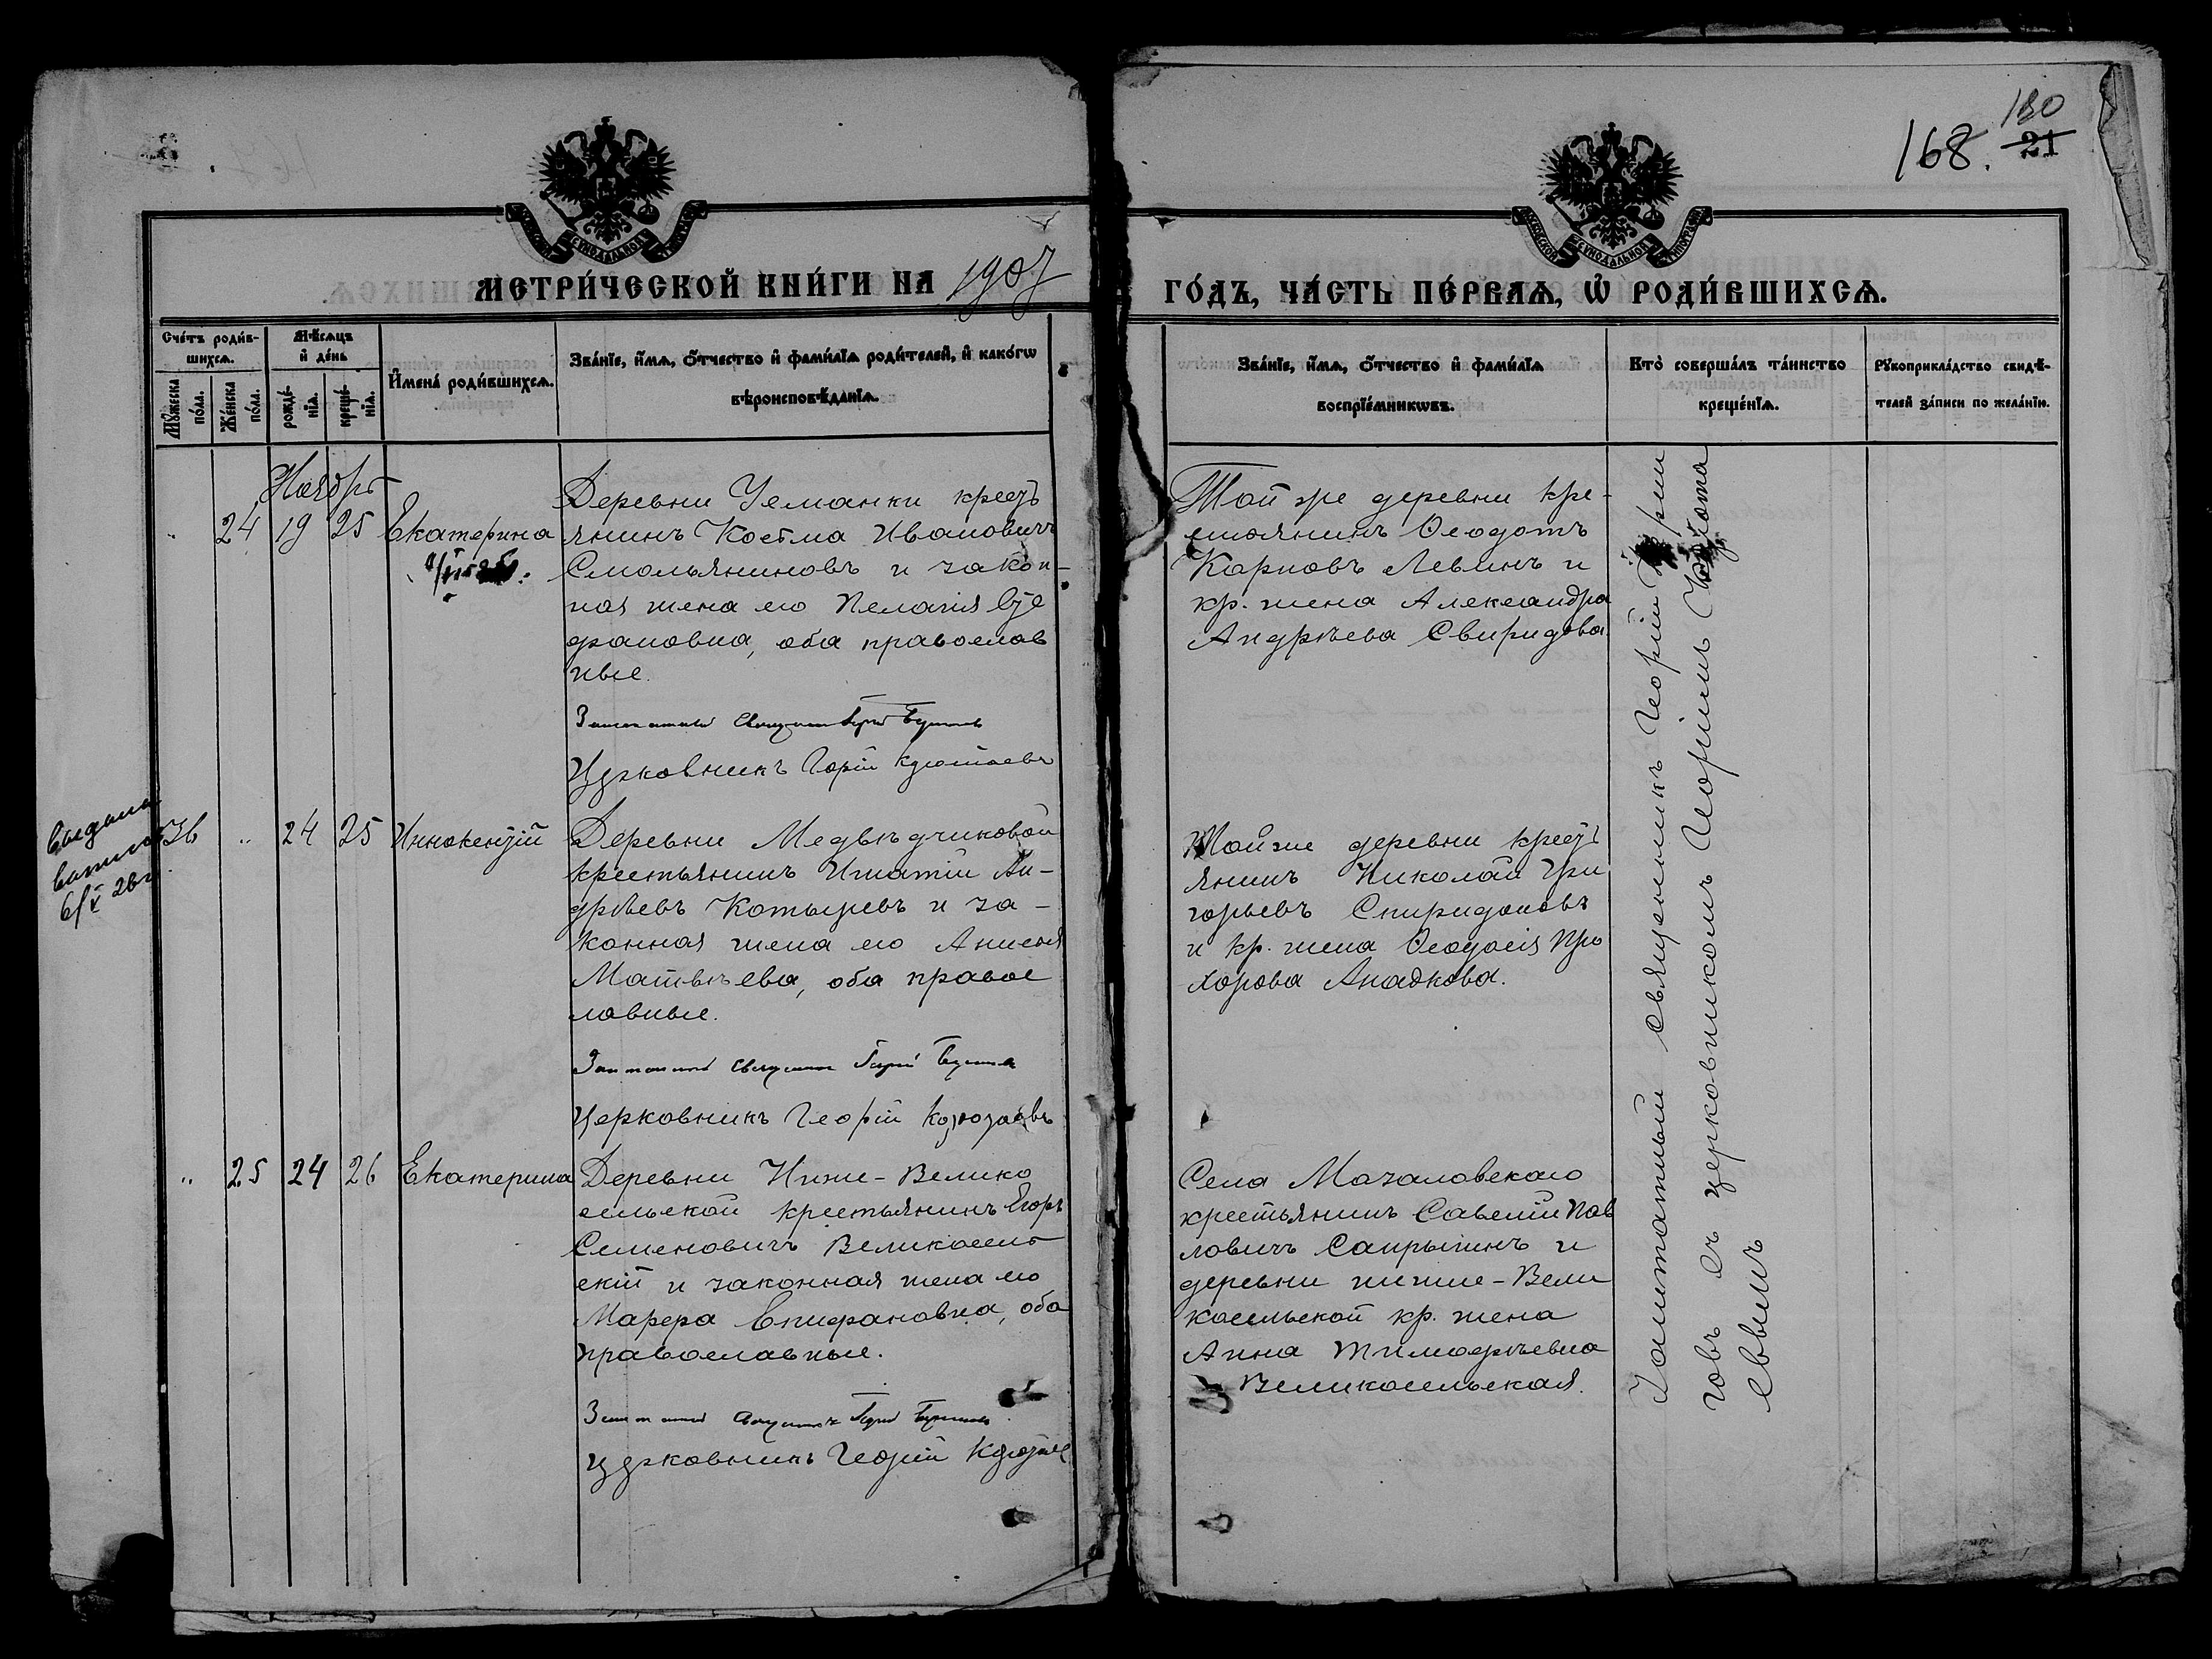 168. 180
21
МЕТРИ́ЧЕСКОЙ КНИ́ГИ НА 1907
ГО́ДЪ, ЧА́СТЬ ПЕ́РВАѦ, Ѡ҆ РОДИ́ВШИХСѦ.
Сче́тъ роди́в-
шихсѧ.
Мꙋ́жеска по́ла.
Же́нска по́ла.
Мѣ́сѧцъ
и҆ де́нь
рожде́-
нїѧ.
креще́-
нїѧ.
И҆мена̀ роди́вшихсѧ.
Зва́нїе, и҆́мѧ, ѻ҆́тчество и҆ фамѝлїѧ роди́телей, и҆ како́гѡ
вѣроисповѣ́данїѧ.
Зва́нїе, и҆́мѧ, ѻ҆́тчество и҆ фамѝлїѧ
воспрїе́мникѡвъ.
Кто̀ соверша́лъ та́инство
креще́нїѧ.
Рꙋкоприкла́дство свидѣ́-
телей за́писи по жела́нїю.
Ноябрь
24 19 25 Екатерина
Деревни Уеманки крест
янинъ Косьма Ивановичъ
Смольяниновъ и закон-
ная жена его Пелагія
фановна, оба православ
ные.
Заштатный Священникъ Георгій
Церковникъ Георгій
Той же деревни кре-
стьянинъ Ѳеодотъ
Карповъ Левинъ и
кр. жена Александра
Андрѣева Свиридова.
6/V 26 г.
" 24 25 Иннокентій
Деревни Медвѣдчиковой
крестьянинъ Игнатій Ан-
дрѣевъ Котыревъ и за-
конная жена его Анисія
Матвѣева, оба правос
лавные.
Заштатный Священникъ Георгій
Церковникъ Георгій
Той же деревни крест
янинъ Николай Гри
горьевъ Спиридоновъ
и кр. жена Ѳеодосія Про
хорова Анадкова.
" 25 24 26 Екатерина
Деревни Ниже-Велико
сельской крестьянинъ Егоръ
Семеновичъ Великосель
скій и законная жена его
Марѳра Епифановна, оба
православные.
Заштатный Священникъ Георгій
Церковникъ Георгій
Села Мочаловскаго
крестьянинъ Савелій Пав
ловичъ Сапрыгинъ и
деревни ниже-Вели
косельской кр. жена
Анна Тимофѣевна
Великосельская.
Заштатный священникъ Георгій
говъ съ церковникомъ Георгіемъ
евымъ